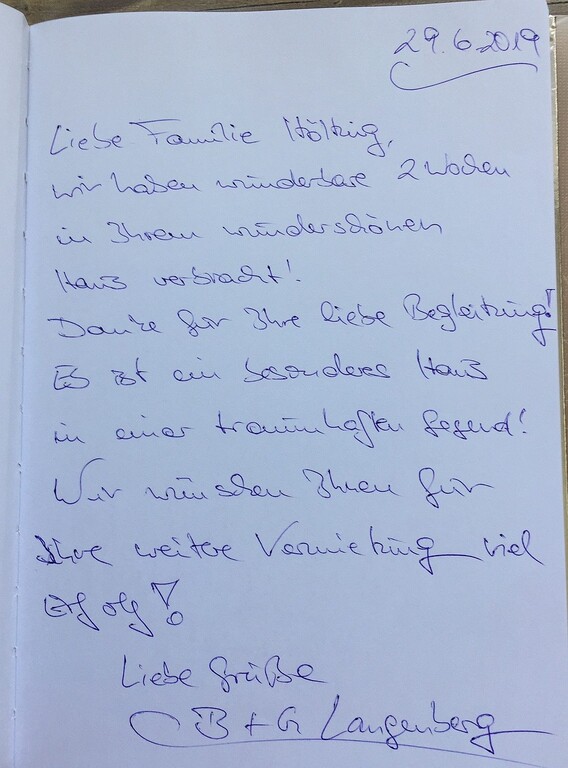 29.6.2019
Liebe Familie Höltzig,
wir haben wunderbare 2 Wochen
in Ihrem wunderschönen
Haus verbracht!
Danke für Ihre liebe Begleitung!
Es ist ein besonderes Haus
in einer traumhaften Gegend!
Wir wünschen Ihnen für
Ihre weitere Vermietung viel
Erfolg!
Liebe Grüße
B + G Langenberg